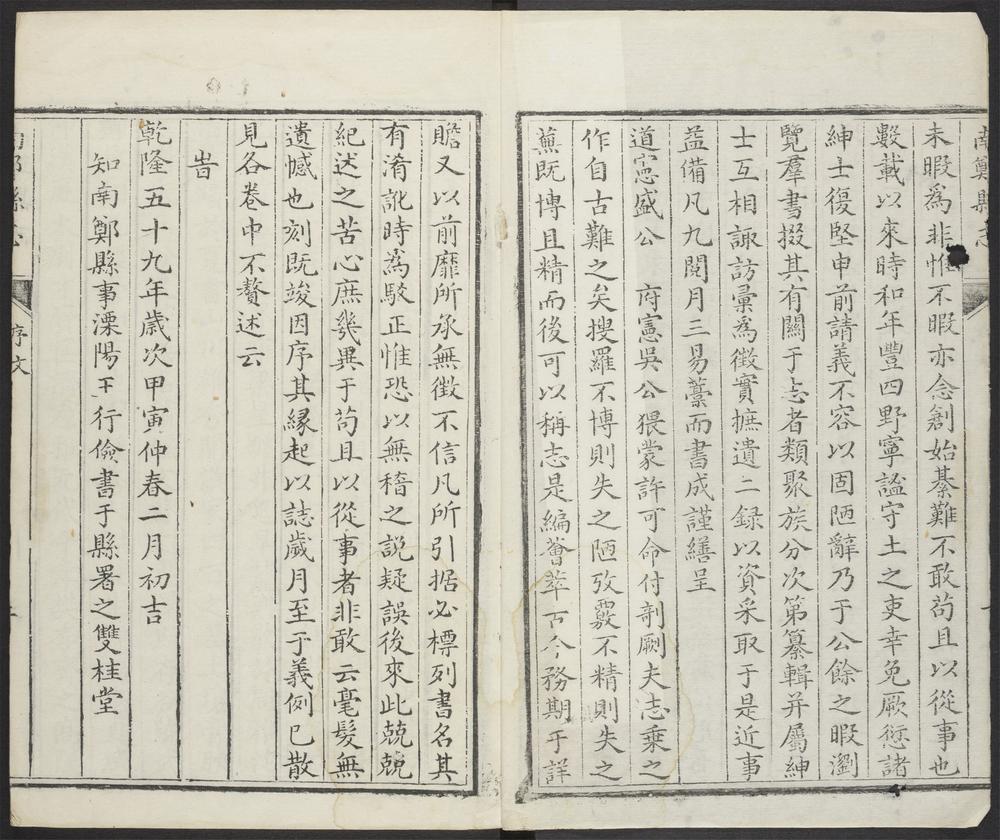 南鄭縣志
未暇為非惟不暇亦念創始綦難不敢苟且以從事也
數載以來時和年豐四野寧謐守土之吏幸免厥愆諸
紳士復堅申前請義不容以固陋辭乃于公餘之暇瀏
覽羣書掇其有關于志者類聚族分次第纂輯并屬紳
士互相諏訪彙為徵實摭遺二録以資采取于是近事
益備凡九閱月三易藳而書成謹繕呈
道憲盛公　府憲吳公猥蒙許可命付剞劂夫志乗之
作自古難之矣搜羅不博則失之陋攷覈不精則失之
蕪既博且精而後可以稱志是編薈萃古今務期于詳
贍又以前靡所承無徵不信凡所引据必標列書名其
有淆訛時為駁正惟恐以無稽之説疑誤後來此兢兢
紀述之苦心庶幾異于苟且以從事者非敢云毫髮無
遺憾也刻既竣因序其縁起以誌歲月至于義例已散
見各卷中不贅述云
旹
乾隆五十九年歲次甲寅仲春二月初吉
知南鄭縣事溧陽王行儉書于縣署之雙桂堂
縣志
序文